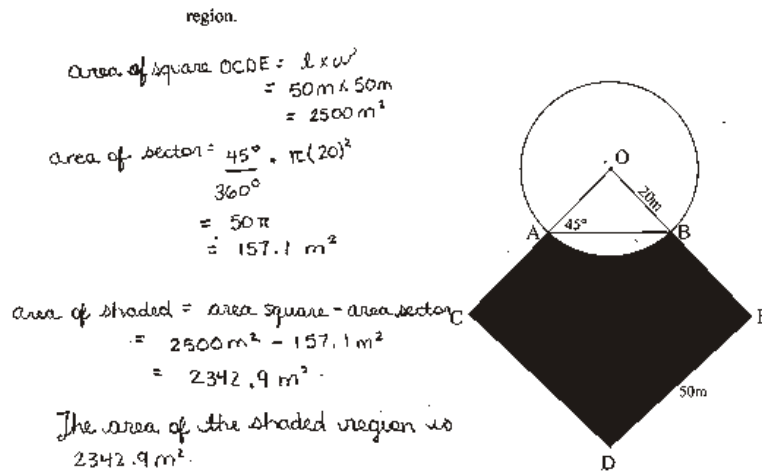 region.
area of square OCDE = l x w
= 50m x 50m
= 2500 m²
area of sector = 45°/360° · π(20)²
= 50π
= 157.1 m²
area of shaded = area square - area sector
= 2500m² - 157.1m²
= 2342.9 m²
The area of the shaded region is
2342.9 m².
O
20m
A
45°
B
C
50m
D